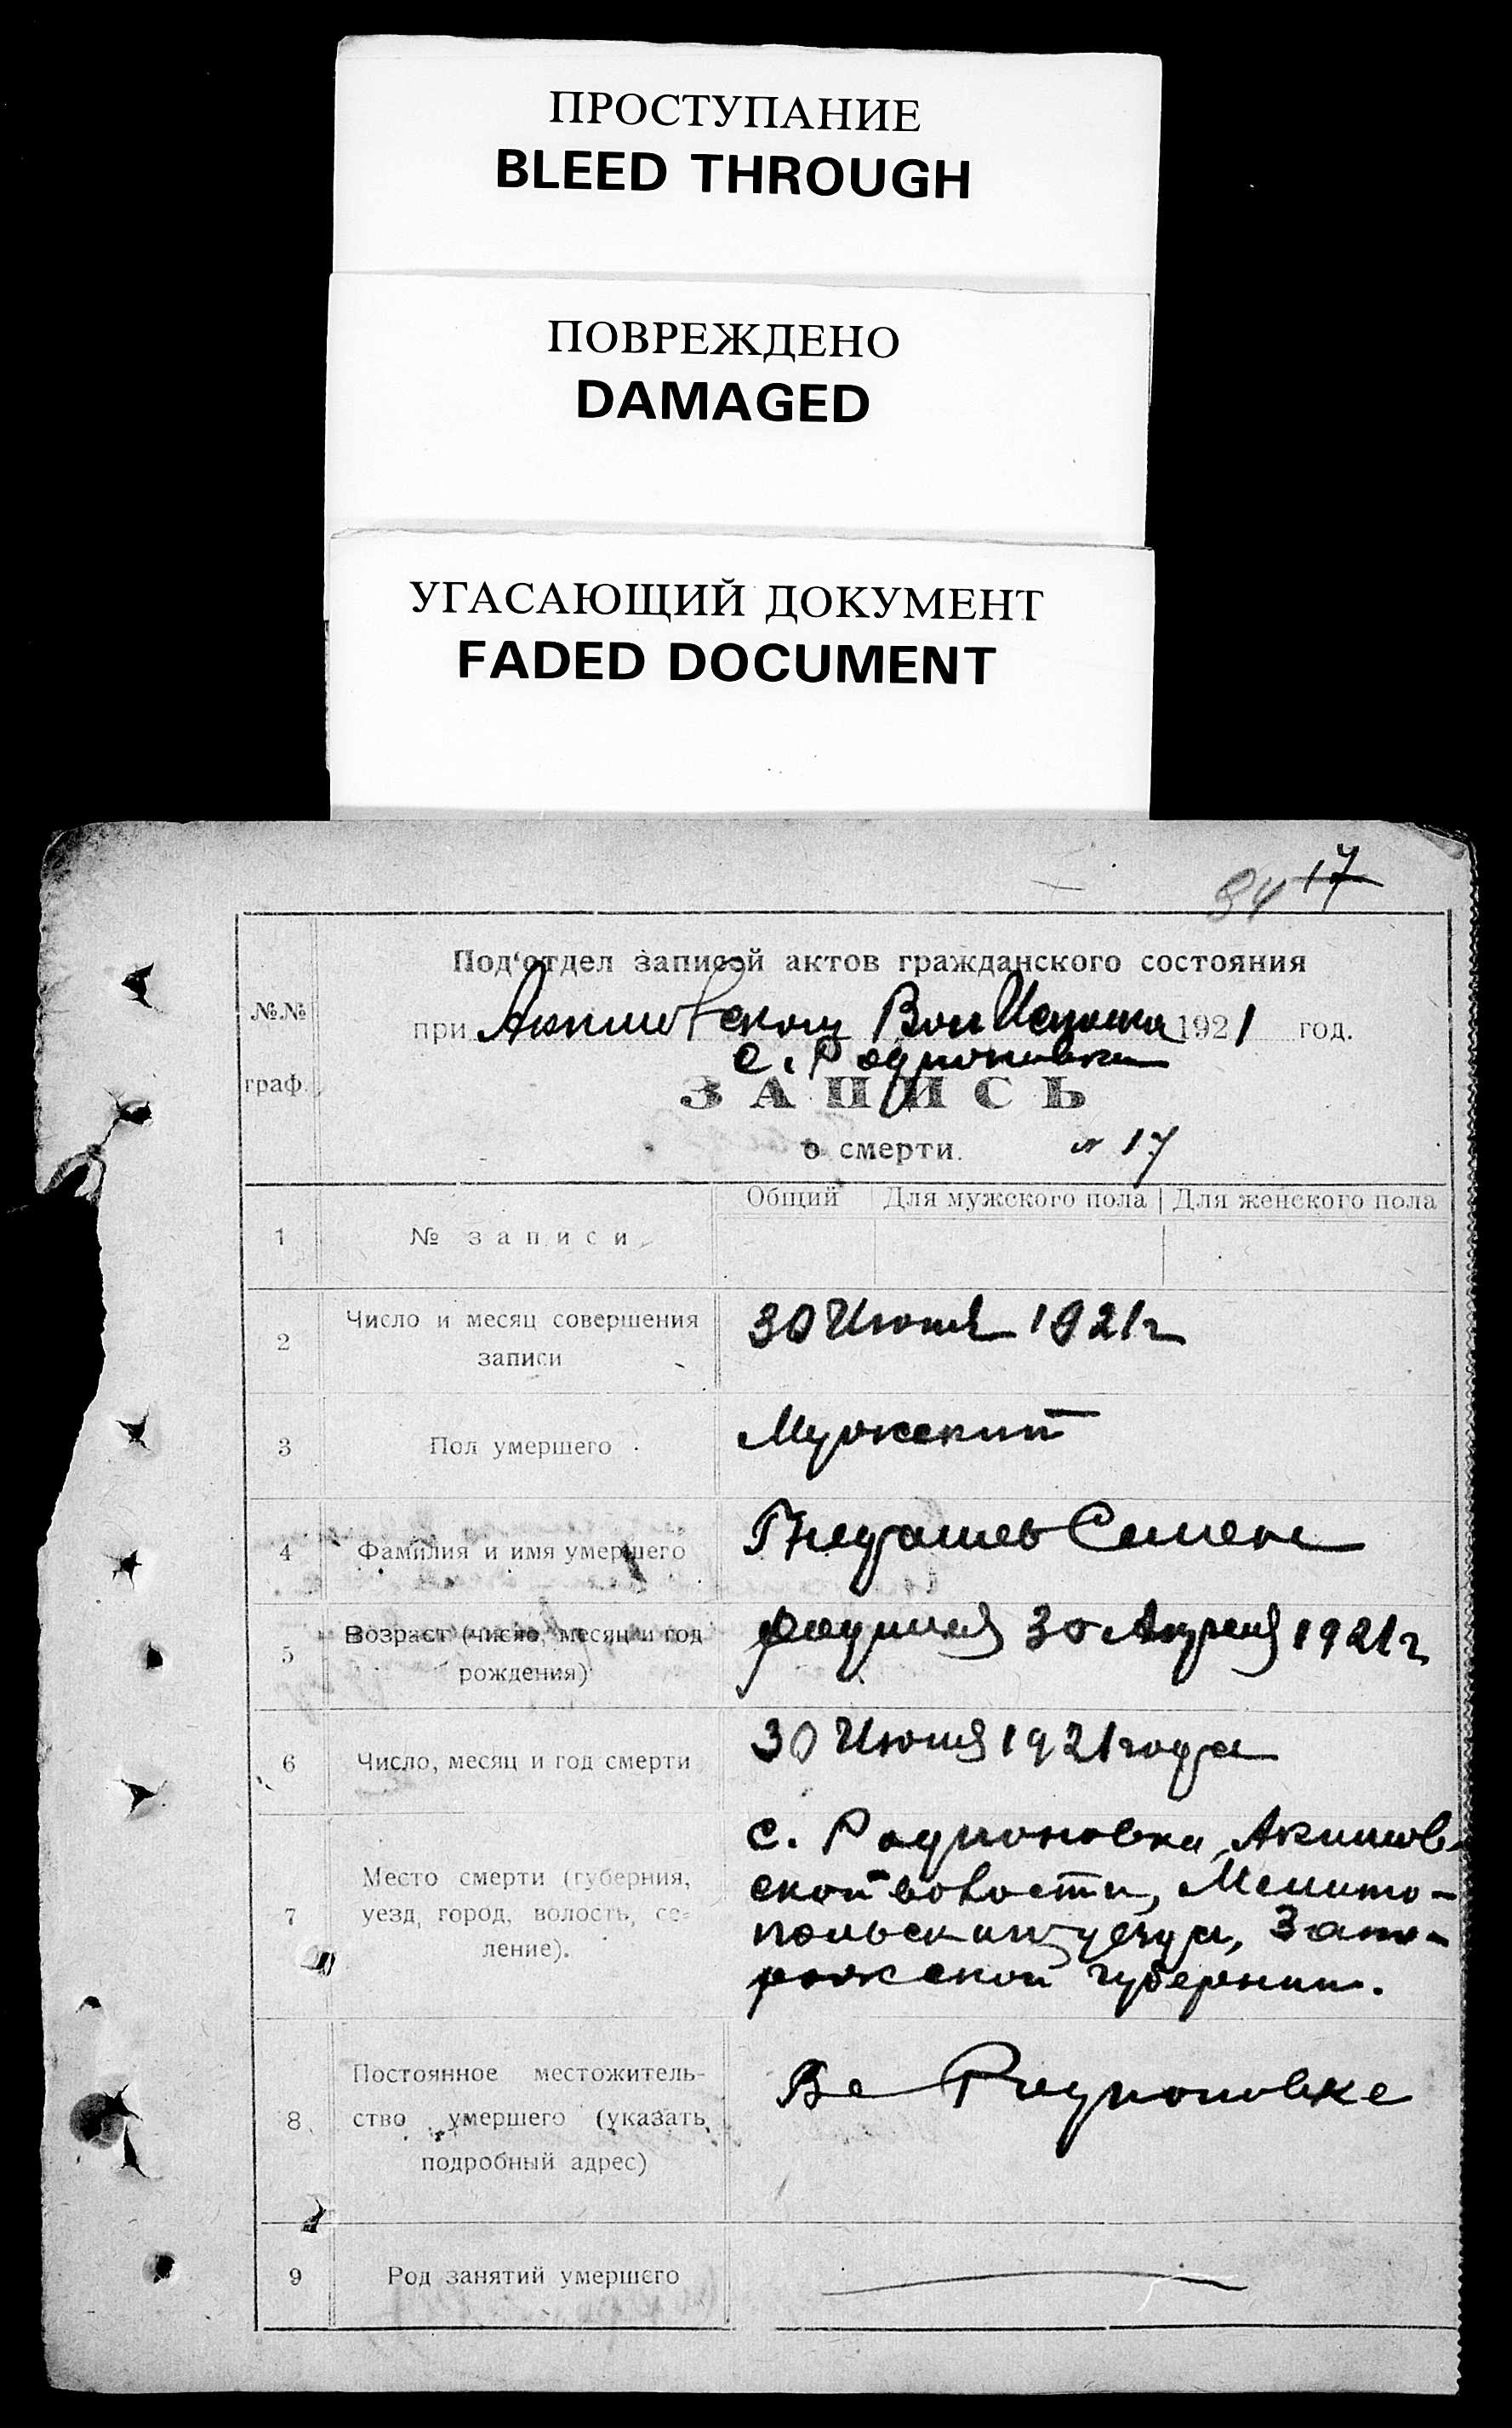 ПРОСТУПАНИЕ
BLEED THROUGH
ПОВРЕЖДЕНО
DAMAGED
УГАСАЮЩИЙ ДОКУМЕНТ
FADED DOCUMENT
84 17
Под‘отдел записей актов гражданского состояния
№№ граф.
при Акимовском Вол Исполка 1921 год.
с. Родионовка
ЗАПИСЬ
о смерти. № 17
Общий Для мужского пола Для женского пола
1 № записи
2 Число и месяц совершения
записи
30 Июня 1921 г
3 Пол умершего
Мужский
4 Фамилия и имя умершего
Семен
5 Возраст (число, месяц и год
рождения)
родился 30 Апреля 1921 г
6 Число, месяц и год смерти
30 Июня 1921 года
7 Место смерти (губерния,
уезд, город, волость, се-
ление).
с. Родионовка, Акимов-
ской волости, Мелито-
польского уезда, Запо-
рожской губернии.
8 Постоянное местожитель-
ство умершего (указать
подробный адрес)
В с Родионовке
9 Род занятий умершего